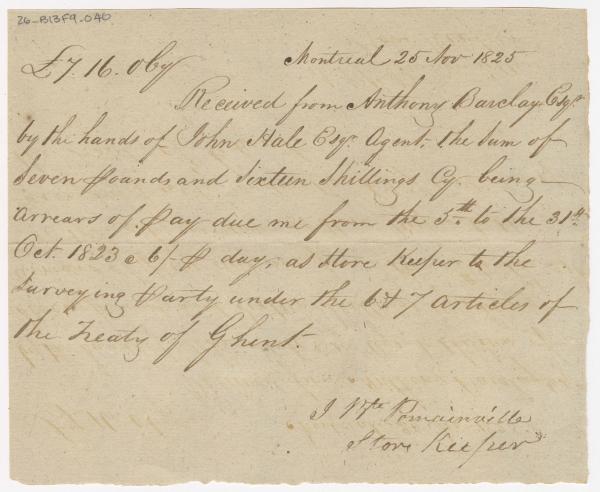 26-B13F9-040
£7.16.0 Cy
Montreal 25 Nov 1825
Received from Anthony Barclay Esqr
by the hands of John Hale Esqr Agent, the Sum of
Seven Pounds and Sixteen Shillings Cy. being
arrears of Pay due me from the 5th to the 31st
Oct. 1823 @ 6/- P day, as Store Keeper to the
Surveying Party under the 6 & 7 articles of
the Treaty of Ghent.
J Bte Pomainville
Store Keeper